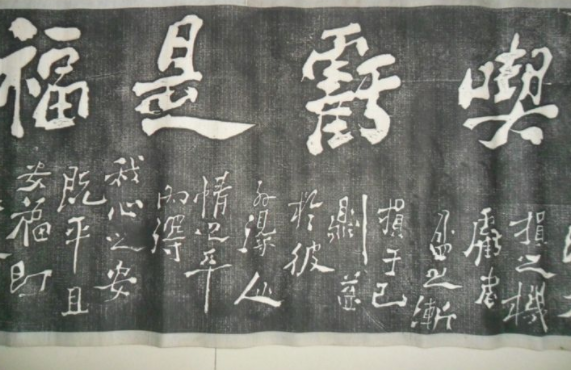 喫虧是福
損之機
虧者
盈之漸
損于己
則益
於彼
外得人
情之平
內得
我心之安
既平且
安福即